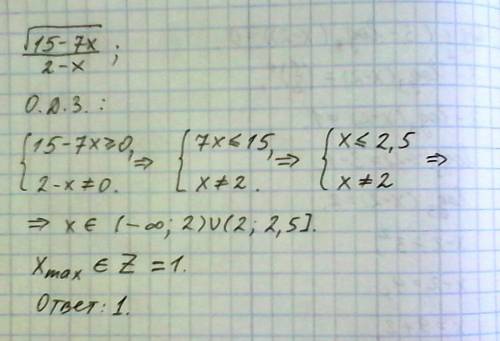 √(15-7x) / (2-x) ;
О.Д.З. :
{ 15-7x ≥ 0, 2-x ≠ 0. ⇒ { 7x ≤ 15, x ≠ 2. ⇒ { x ≤ 2,5 x ≠ 2 ⇒
⇒ x ∈ (-∞; 2)∪(2; 2,5].
Xmax ∈ Z = 1.
Ответ: 1.